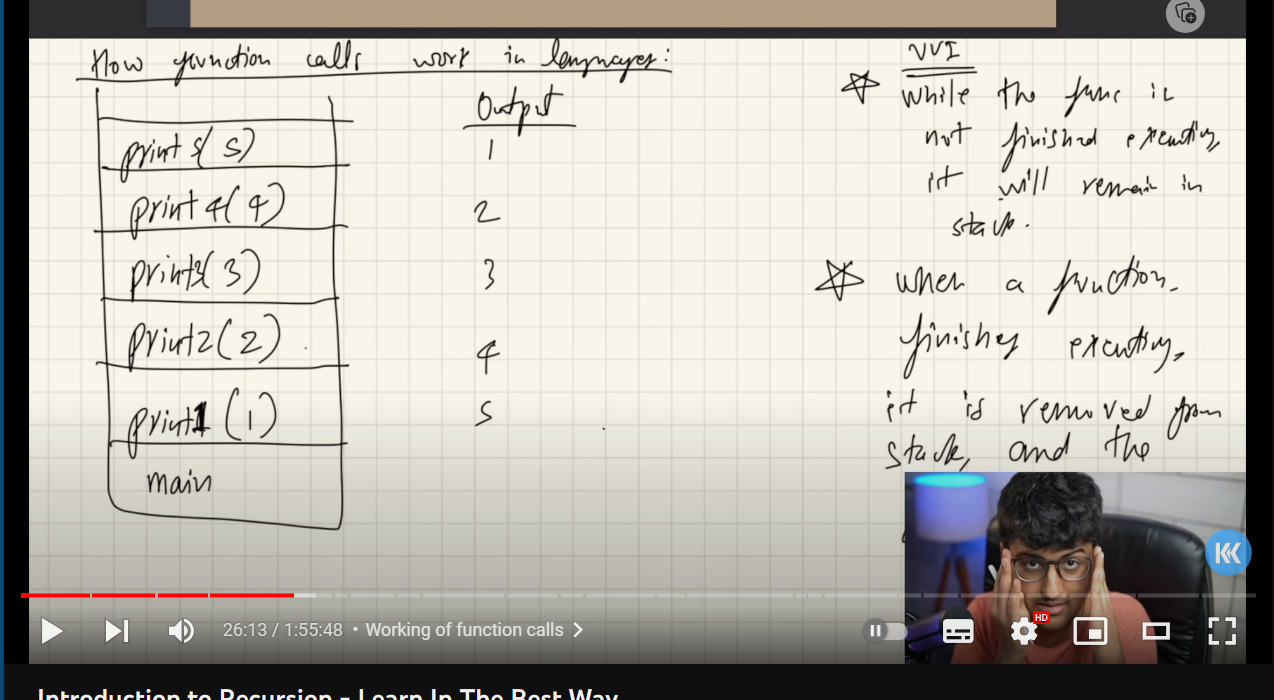 How function calls work in languages:
Output
print5(5)
1
print4(4)
2
print3(3)
3
print2(2)
4
print1(1)
5
main
VVI
while the func is
not finished executing
it will remain in
stack.
when a function
finishes executing,
it is removed from
stack, and the
HD
26:13 / 1:55:48 • Working of function calls
Introduction to Recursion - Learn In The Best Way